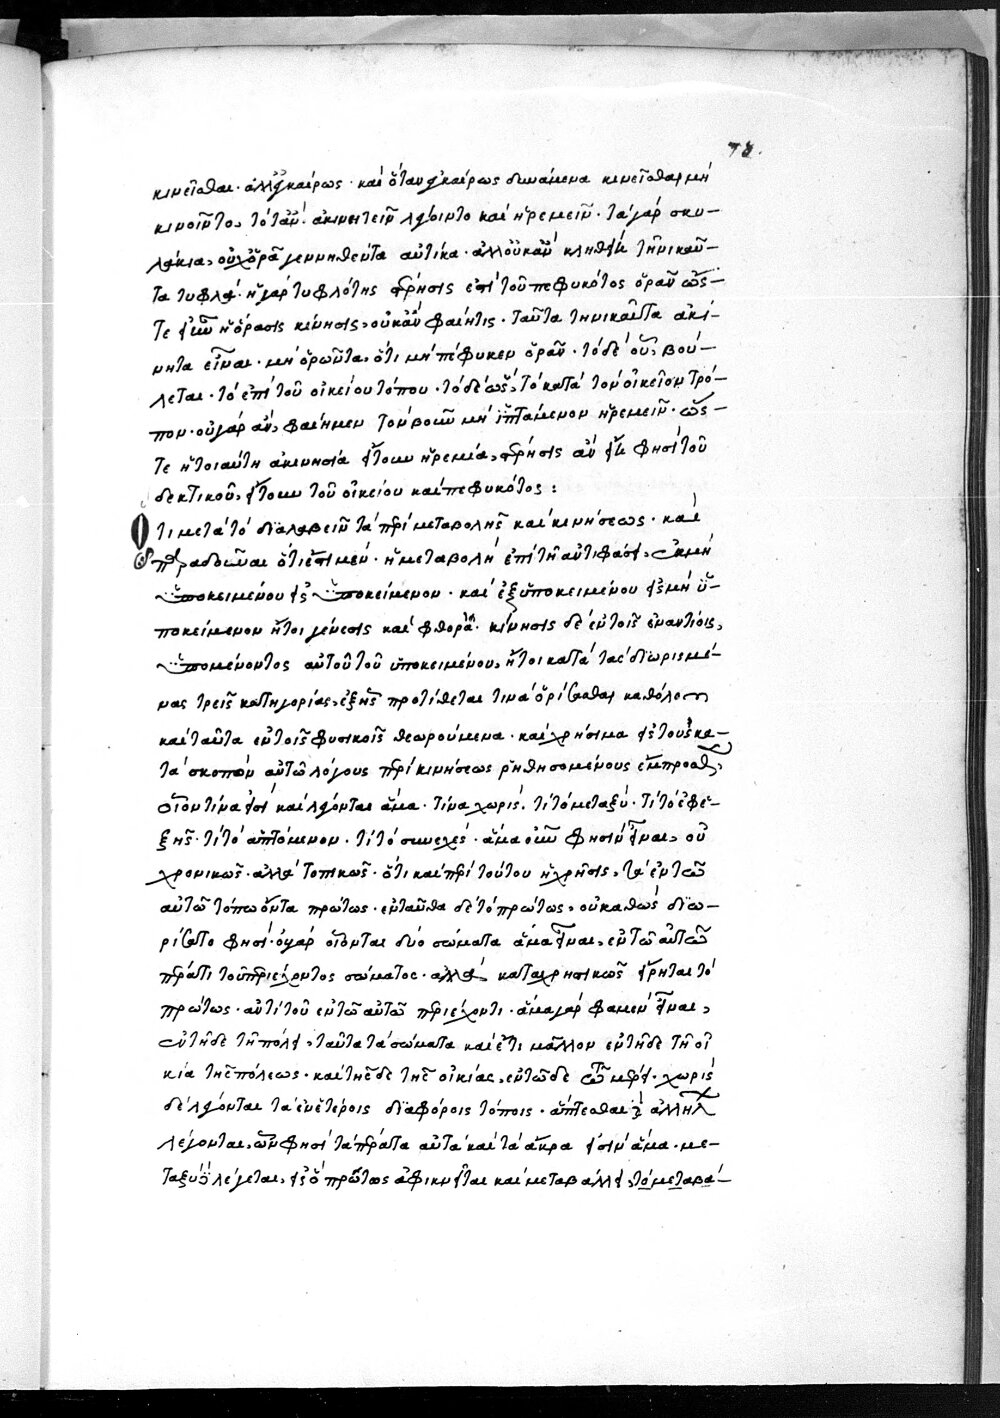 κινεῖσθαι· ἀλλ' εὐκαίρως· καὶ ὅταν εὐκαίρως δυνάμενα κινεῖσθαι μὴ
κινοῖντο, τότ' ἂν ἀκινητεῖν λέγοιντο καὶ ἠρεμεῖν· τὰ γὰρ σκυ-
λάκια, οὐχ ὁρᾶ γεννηθέντα αὐτίκα· ἀλλ' οὐκ ἂν κληθείη τηνικαῦ-
τα τυφλά· ἡ γὰρ τυφλότης στέρησις ἐπὶ τοῦ πεφυκότος ὁρᾶν ὥσ-
τε εἰ οὖν ἡ ὅρασις κίνησις, οὐκ ἂν φαίη τις· ταῦτα τηνικαῦτα ἀκί-
νητα εἶναι· μὴ ὁρῶντα, ὅτι μὴ πέφυκεν ὁρᾶν· τὸ δὲ οὗ, βού-
λεται· τὸ ἐπὶ τοῦ οἰκείου τόπου· τὸ δὲ ὡς, τὸ κατὰ τὸν οἰκεῖον τρό-
πον· οὐ γὰρ ἂν φαίημεν τὸν βοῦν μὴ ἱπτάμενον ἠρεμεῖν· ὥσ-
τε ἡ τοιαύτη ἀκινησία εἴτουν ἠρεμία, στέρησις ἂν εἴη φησὶ τοῦ
δεκτικοῦ, εἴτουν τοῦ οἰκείου καὶ πεφυκότος:
Ὅτι μετὰ τὸ διαλαβεῖν τὰ περὶ μεταβολῆς καὶ κινήσεως· καὶ
παραδοῦναι ὅτι ἐστὶ μὲν· ἡ μεταβολὴ ἐπὶ τῆ ἀντιφάσει, ἐκ μὴ
ὑποκειμένου εἰς ὑποκείμενον· καὶ ἐξ ὑποκειμένου εἰς μὴ ὑ-
ποκείμενον ἤτοι γένεσις καὶ φθορά· κίνησις δὲ ἐν τοῖς ἐναντίοις,
ὑπομένοντος αὐτοῦ τοῦ ὑποκειμένου, ἤτοι κατὰ τὰς διωρισμέ-
νας τρεῖς κατηγορίας, ἑξῆς προτίθεται τινὰ ὁρίζεσθαι καθόλου
καὶ ταῦτα ἐν τοῖς φυσικοῖς θεωρούμενα· καὶ χρήσιμα εἰς τοὺς κα-
τὰ σκοπὸν αὐτῶ λόγους περὶ κινήσεως ῥηθησομένους ἔμπροσθεν,
οἷον τίνα εἰσὶ καὶ λέγονται ἅμα· τίνα χωρίς· τί τὸ μεταξύ· τί τὸ ἐφε-
ξῆς· τί τὸ ἁπτόμενον· τί τὸ συνεχές· ἅμα οὖν φησὶν εἶναι, οὐ
χρονικῶς· ἀλλὰ τοπικῶς· ὅτι καὶ περὶ τούτου ἡ χρῆσις, τὰ ἐν τῶ
αὐτῶ τόπω ὄντα πρώτως· ἐνταῦθα δὲ τὸ πρώτως, οὐ καθὼς διω-
ρίζετο φησὶ· οὐ γὰρ οἴονται δύο σώματα ἅμα εἶναι, ἐν τῶ αὐτῶ
πέρατι τοῦ περιέχοντος σώματος· ἀλλὰ καταχρηστικῶς εἴρηται τὸ
πρώτως· ἀντὶ τοῦ ἐν τῶ αὐτῶ περιέχοντι· ἅμα γὰρ φαμὲν εἶναι,
ἐν τῆδε τῆ πόλει, ταῦτα τὰ σώματα καὶ ἔτι μᾶλλον ἐν τῆδε τῆ οἰ-
κία τῆς πόλεως· καὶ τῆσδε τῆς οἰκίας, ἐν τῶδε τῶ μέρει· χωρὶς
δὲ λέγονται τὰ ἐν ἑτέροις διαφόροις τόποις· ἅπτεσθαι δὲ ἀλλήλων
λέγονται, ὧν φησὶ τὰ πέρατα αὐτὰ καὶ τὰ ἄκρα εἰσὶν ἅμα· με-
ταξὺ δὲ λέγεται, εἰς ὃ πρῶτως ἀφικνεῖται καὶ μεταβάλλει, τὸ μεταβά-